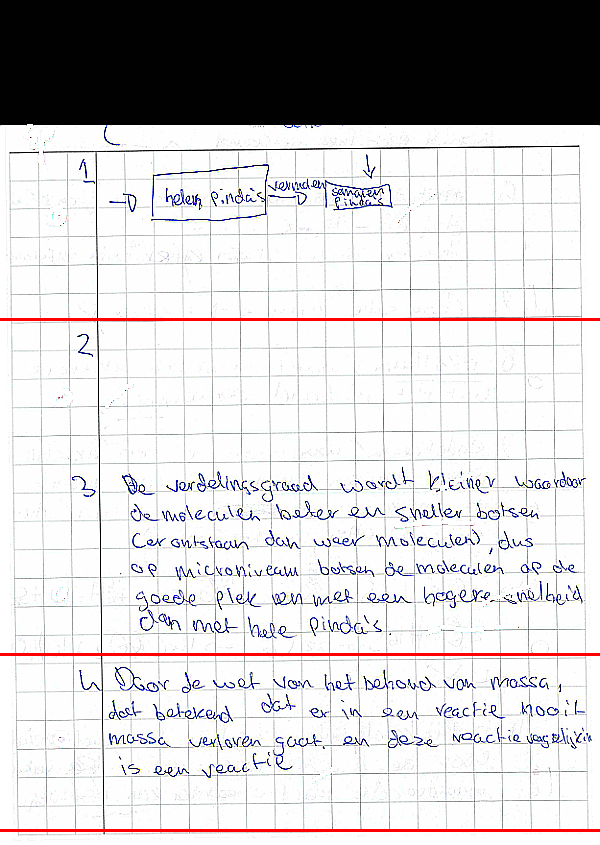 1
helen pinda's
vermalen
gemalen
pinda's
2
3 De verdelingsgraad wordt kleiner waardoor
de moleculen beter en sneller botsen
(er ontstaan dan weer moleculen), dus
op microniveau botsen de moleculen op de
goede plek en met een hogere snelheid
dan met hele pinda's.
4 Door de wet van het behoud van massa,
dat betekend dat er in een reactie nooit
massa verloren gaat. en deze
is een reactie